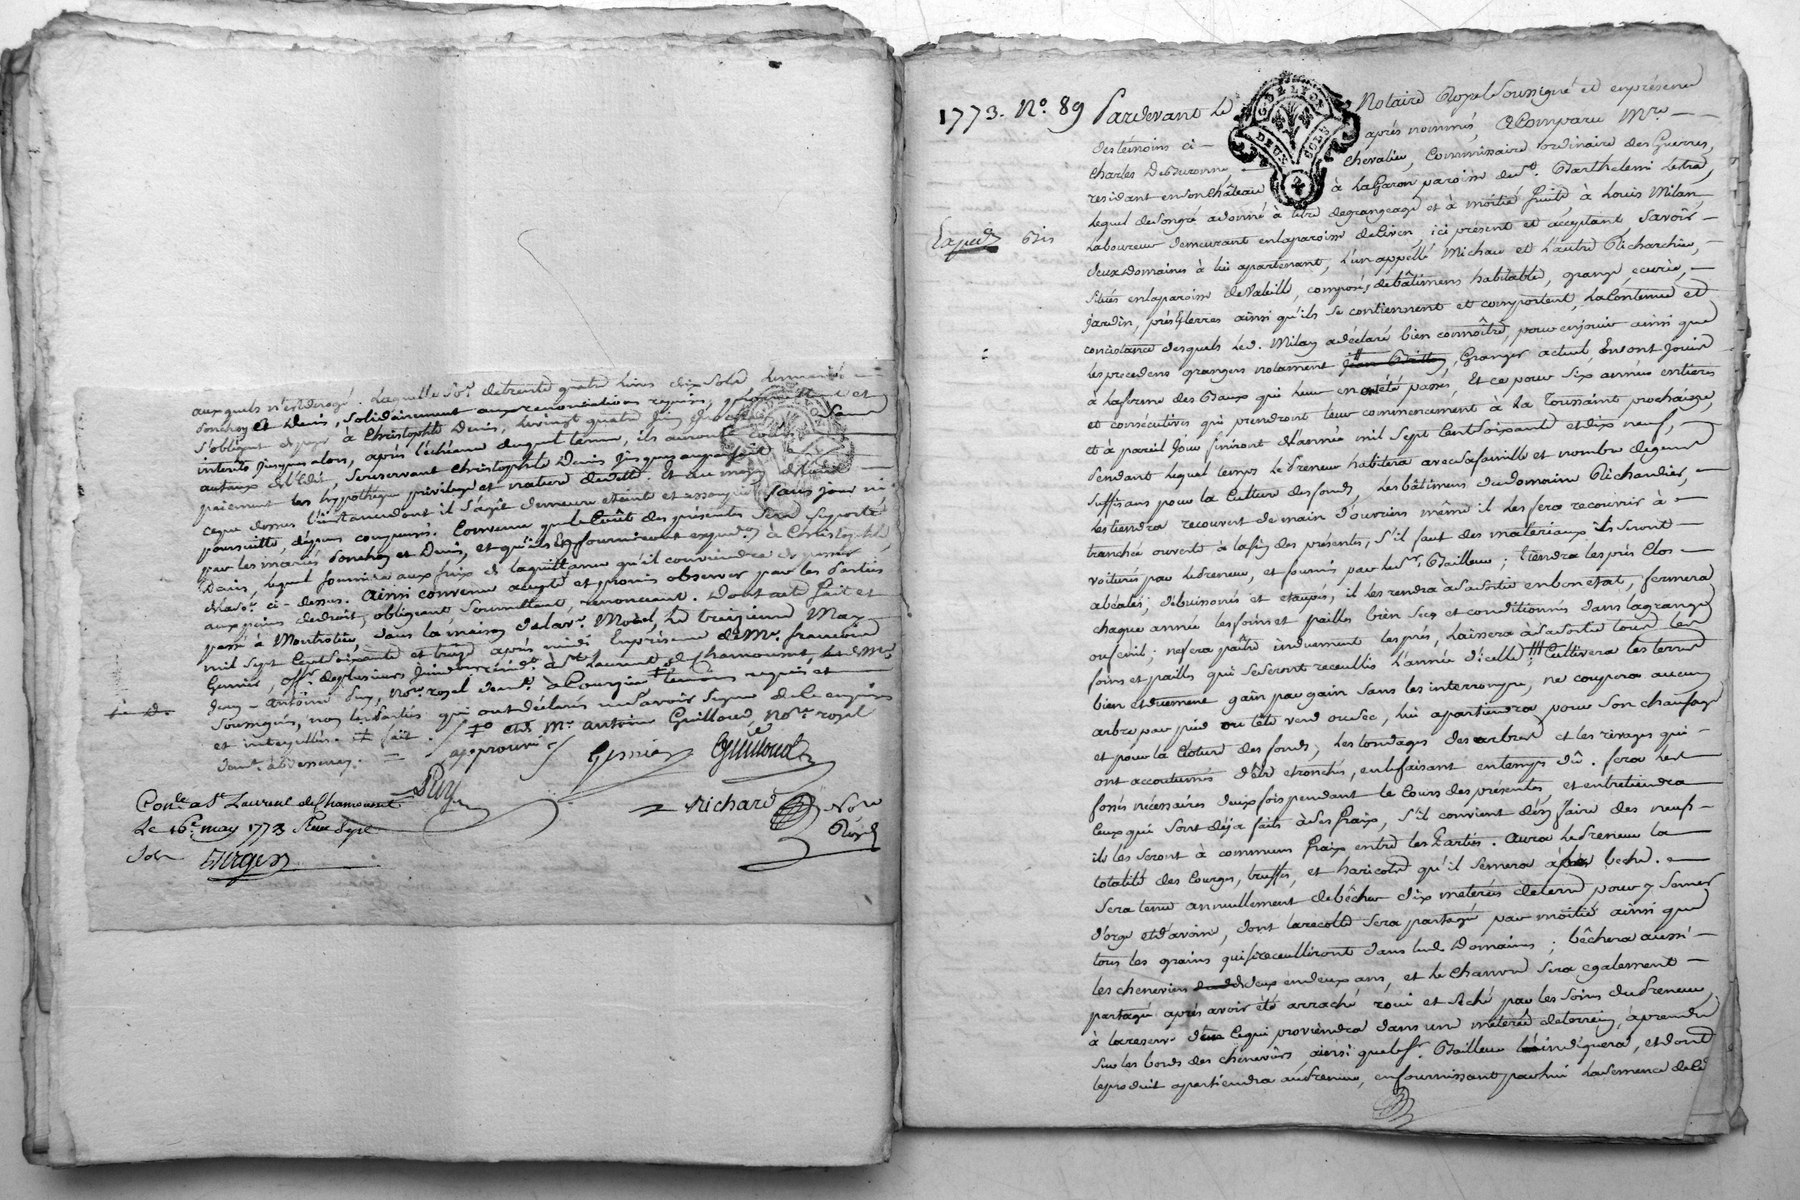 auxquels n'est dérogé. Laquelle so.e de trente quatre livres dix sols, les mariés
Ponchon et Denis, solidairement aux renonciations requises, promettent et
s'obligent de payer à Christophle Denis, le vingt quatre juin prochain Sans
interets jusques alors, après l'échéance duquel terme, ils auront cours
autaux de l'Edit, se reservant Christophle Denis jusques au parfait
paiement les hypothèque privilege et nature de dette. Et au moyen de tout
ceque dessus l'instance dont il s'agit demeure eteinte et assoupie sans jour ni
poursuitte, dépens compensés. Convenu que le Coût des présentes Sera Suporté
par les mariés Ponchon et Denis, et qu'ils en fourniront exped.on à Christophle
Denis, lequel fournira aux frix de la quittance qu'il conviendra de passer
de lad.e so.e ci-dessus. Ainsi convenu accepté et promis observer par les Parties
aux peines de droit, obligeant, Soumettant, renonceant. Dont acte fait et
passé à Montrotier, dans la maison de la ve. Morel, Le treizieme May
mil sept Cent soixante et treize après midi En présence de Mr. francois
Gernier, off.r de plusieurs Jurid.ons resid.t à St Laurent de Chamousset, et de Me
Jean-Antoine Puy, no.re royal dem.t à Longessaigne temoins requis et
Soussignés, non les Parties qui ont déclaré ne savoir signer de ce enquises
et interpellées. fait. et Me. antoine Guilloud, No.re royal
approuvé
Gernier Guilloud
Puy
Con.lé a St Laurent de Chamousset
Le 16e may 1773 Reçu Sept
Sols
Richard No.re
Roy.l
Berger
1773. No. 89 Pardevant Le Notaire Royal Soussigné et en présence
des témoins ci- après nommés, A Comparu Mre
GDE LYON
DEUX SOLS
Charles Deburonne, chevalier, Commissaire ordinaire des Guerres,
residant en son Château à Lafaron paroisse de St. Barthelemi Lestra,
Lequel de son gré a donné à titre de grangeage et à moitié fruits à Louis Milan
Expedié Bis
Laboureur demeurant en la paroisse de Civen, ici présent et acceptant, Savoir
deux domaines à lui apartenant, l'un appellé Michau et L'autre Richarchier,
Situés en la paroisse de Valeille, composés de bâtimens habitable, grange, ecurie,
jardin, prés & terres ainsi qu'ils se contiennent et comportent, La Contenue et
concistance desquels led. Milan a déclaré bien connoître, pour en jouir ainsi que
Les precedens grangers notament Jean Grange actuel, En ont jouir
à la forme des Baux qui leur en ont eté passés, Et ce pour Six années entieres
et consécutives qui prendront leur commencement à La Toussaint prochaine,
et à pareil Jour finiront de l'année mil Sept Cent Soixante et dix neuf,
Pendant lequel temps Le Preneur habitera avec Sa famille et nombre de gens
Suffisans pour la Culture des fonds, Les bâtimens du domaine Richardier,
Les tiendra recouvert de main d'ouvriers même il Les fera recouvrir à
tranchée ouverte à la fin des présentes, S'il faut des materiaux ils Seront
voiturés par le Preneur, et fournis par le Sr. Bailleur; tiendra les prés Clos
abéalés, débuissonés et étaupés, il les rendra à Sa Sortie en bon etat, fermera
chaque année les foins et pailles bien Secs et conditionnés dans la grange
ou fenil; ne fera paître indument les prés, Laissera à Sa Sortie tous les
foins et pailles qui Se Seront receullis L'année d'icelle; Cultivera les terres
bien et duement gain par gain Sans les interrompre, ne coupera aucun
arbre par pied ou tête verd ou Sec, Lui apartiendra pour son chaufage
et pour la Cloture des fonds, Les tondages des arbres et les rivages qui
ont accoutumés d'être etronchés, en le faisant en temps dû. fera les
fossés nécessaires deux fois pendant le Cours des présentes et entretiendra
Ceux qui Sont déja faits à Ses fraix, S'il convient d'en faire des neufs
ils les feront à communs fraix entre les Parties. Aura le Preneur la
totalité des Courges, truffes, et haricots qu'il Semera à la beche.
Sera tenu annuellement de bêcher dix meterées de terre pour y Semer
d'orge et d'avoine, dont la recolte Sera partagée par moitié ainsi que
tous les grains qui Se receulliront dans lesd. Domaines; bêchera aussi
les cheneviers de deux en deux ans, et le Chanvre Sera egalement
partagé après avoir été arraché roui et Seché par les Soins du Preneur,
à la reserve de ce qui proviendra dans une meterée de terrein, a prendre
Sur les bords des cheneviers ainsi que le Sr. Bailleur lui indiquera, et dont
le produit apartiendra au Preneur, en fournissant par lui La Semence de Ce